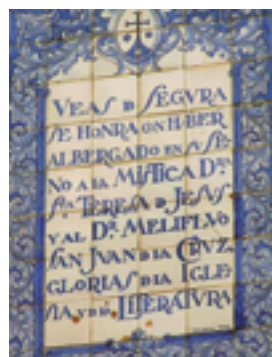 VEAS D SEGVRA
SE HONRA CON HABER
ALBERGADO EN SV SE-
NO A LA MÍSTICA Dra.
Sta. TERESA D JESVS
Y AL Dr. MELIFLVO
SAN JVAN D LA CRVZ,
GLORIAS D LA IGLE-
SIA Y D LA LITERATVRA